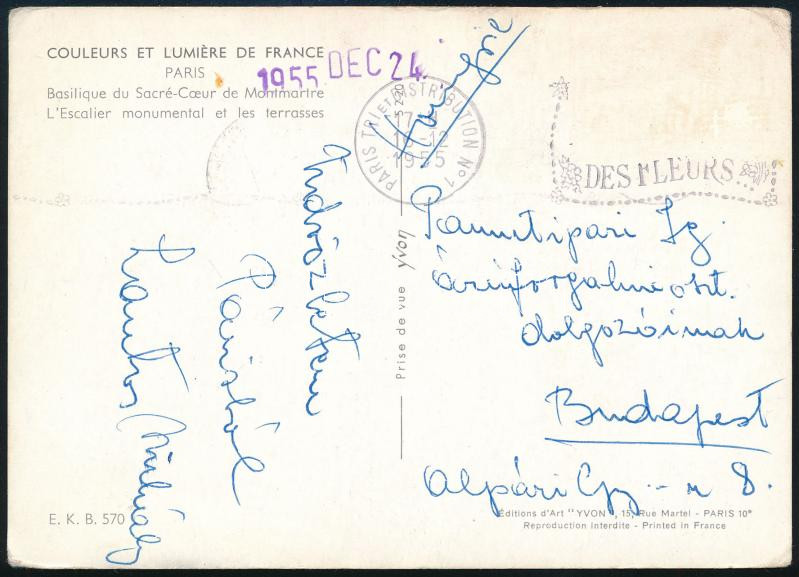 COULEURS ET LUMIÈRE DE FRANCE
PARIS
Basilique du Sacré-Cœur de Montmartre
L'Escalier monumental et les terrasses
1955 DEC 24.
PARIS TRI et DISTRIBUTION No 1
17H
16-12
1955
DES FLEURS...
Üdvözletem
Párisból
Lantos Mihály
Prise de vue Yvon
Pamutipari Ig.
Áruforgalmi oszt.
dolgozóinak
Budapest
Alpári Gy u 8.
E. K. B. 570
Éditions d'Art "YVON", 15, Rue Martel - PARIS 10e
Reproduction Interdite - Printed in France